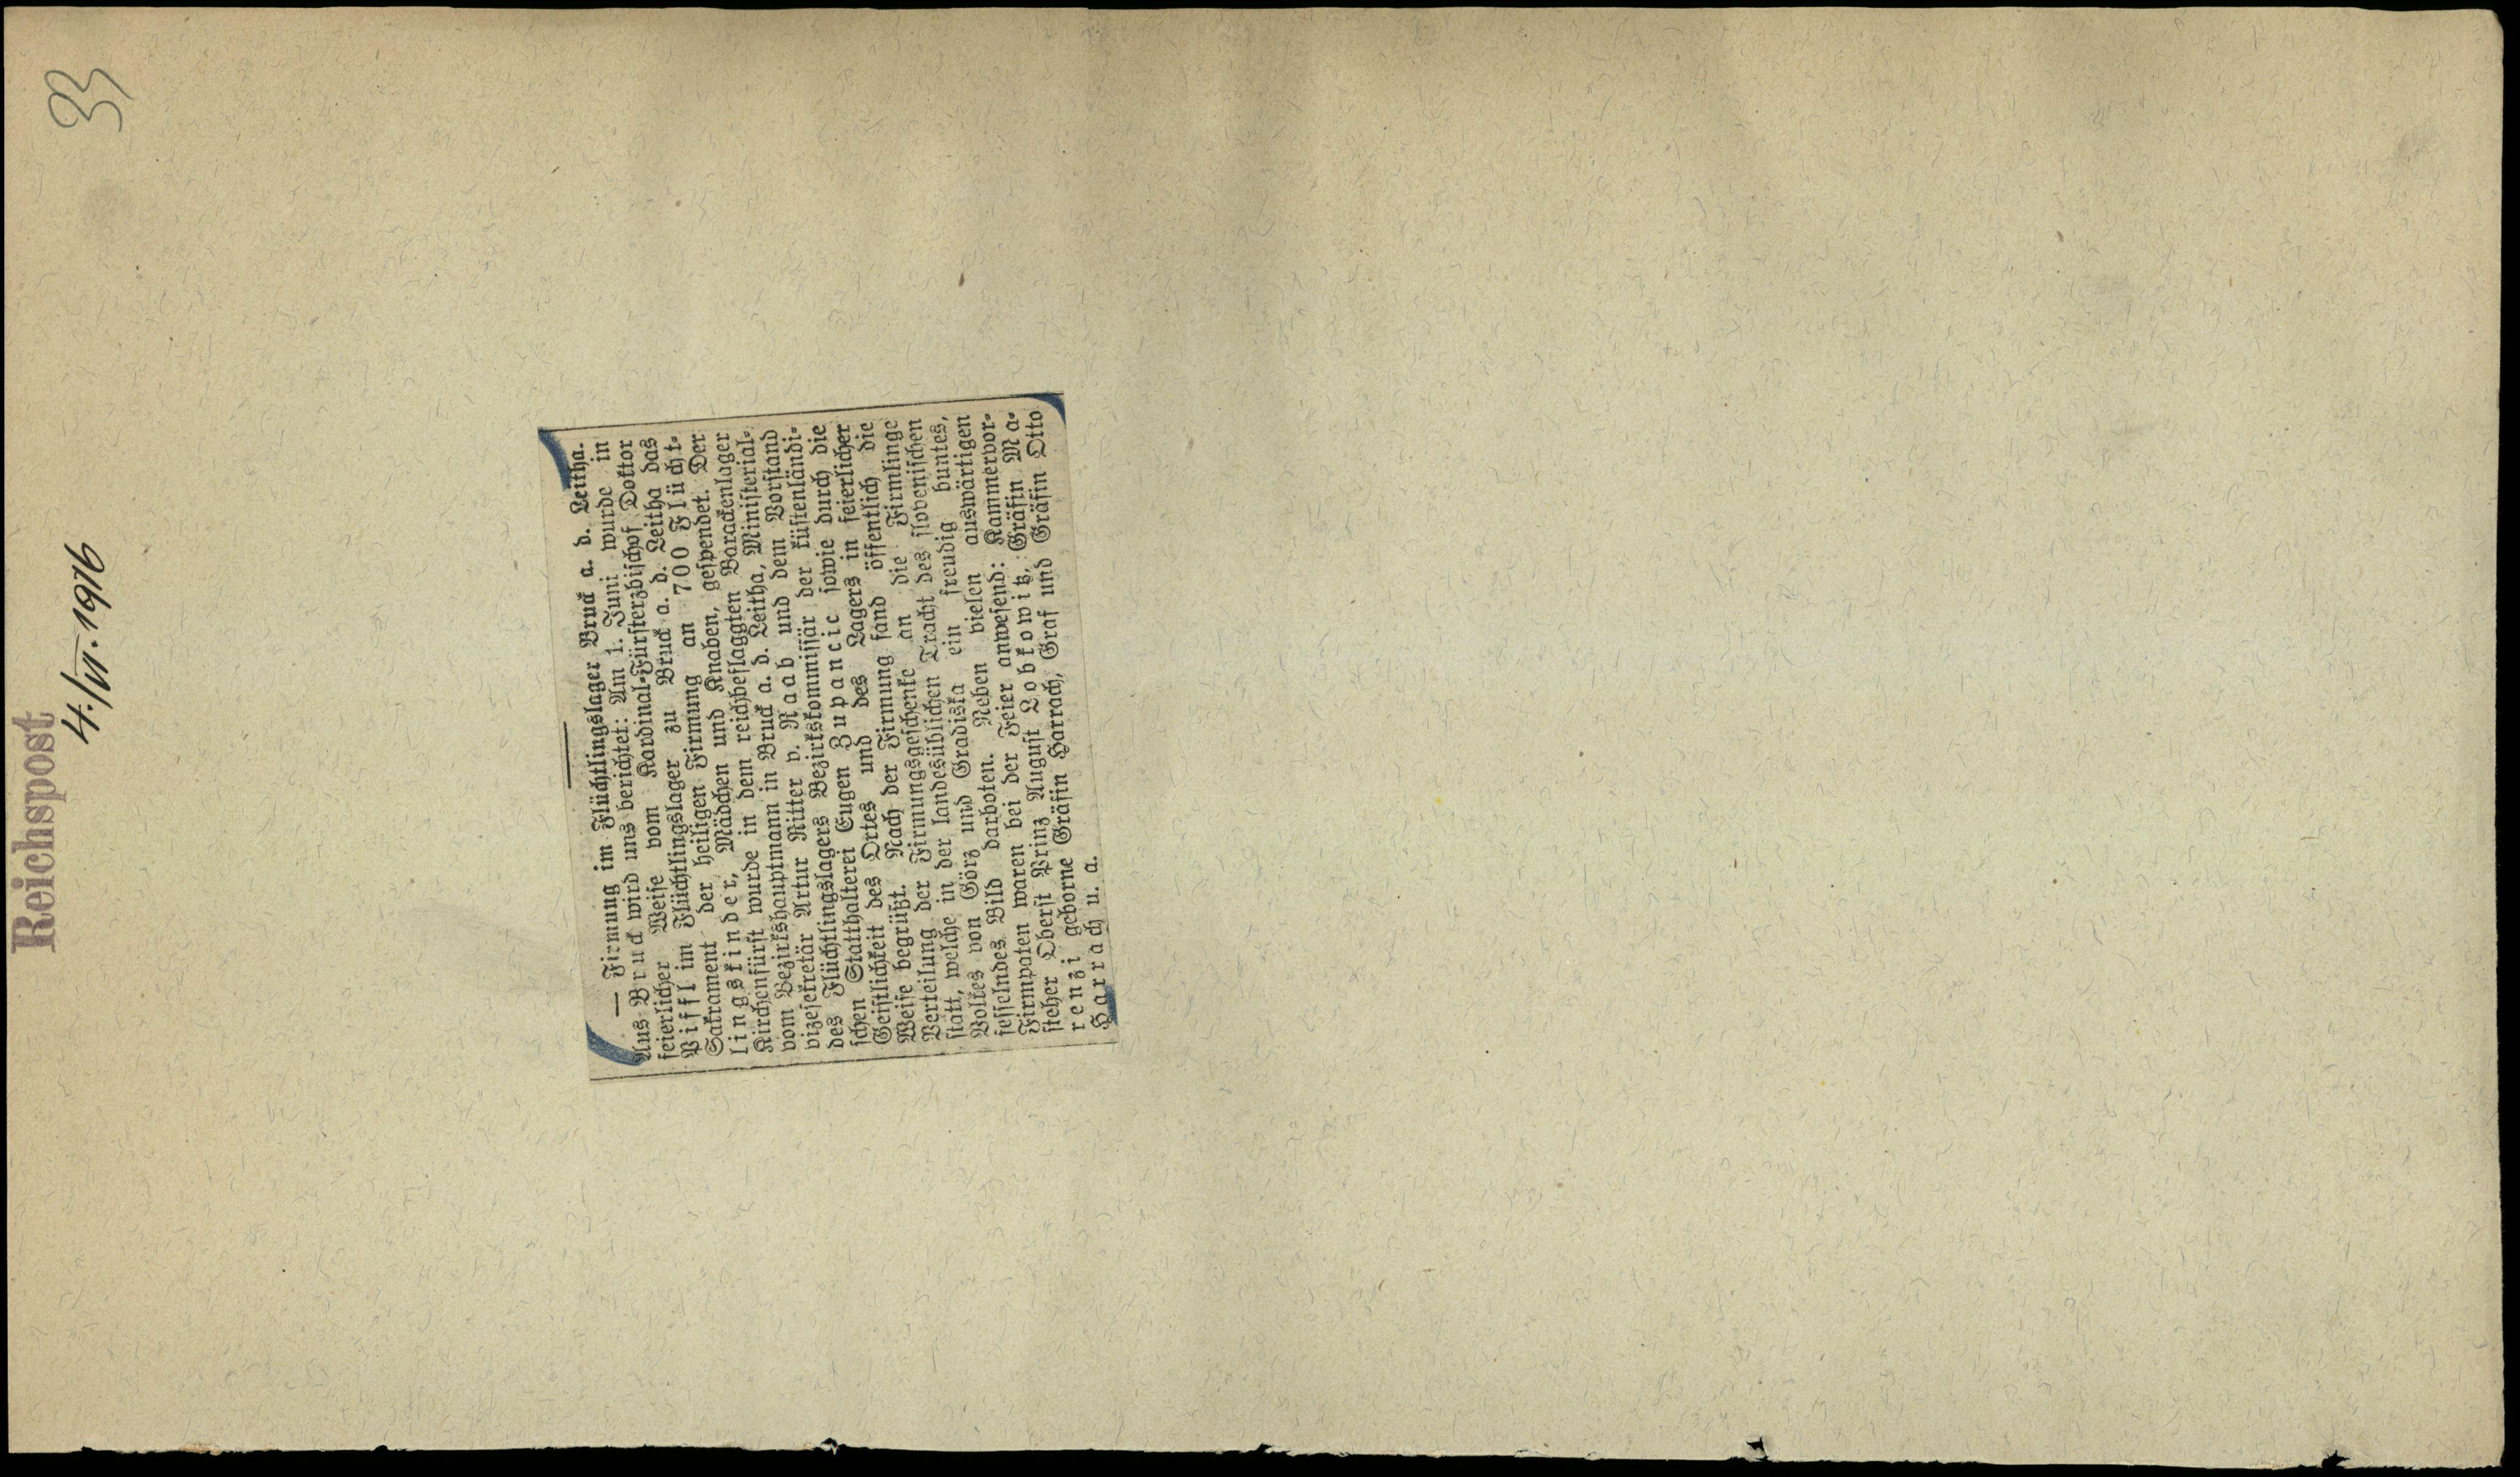 33
Reichspost
4./VI. 1916
— Firmung im Flüchtlingslager Bruck a. d. Leitha.
Aus Bruck wird uns berichtet: Am 1. Juni wurde in
feierlicher Weise vom Kardinal-Fürsterzbischof Doktor
Piffl im Flüchtlingslager zu Bruck a. d. Leitha das
Sakrament der heiligen Firmung an 700 Flücht-
lingskinder, Mädchen und Knaben, gespendet. Der
Kirchenfürst wurde in dem reichbeflaggten Barackenlager
vom Bezirkshauptmann in Bruck a. d. Leitha, Ministerial-
vizesekretär Artur Ritter v. Raab und dem Vorstand
des Flüchtlingslagers Bezirkskommissär der küstenländi-
schen Statthalterei Eugen Zupancic sowie durch die
Geistlichkeit des Ortes und des Lagers in feierlicher
Weise begrüßt. Nach der Firmung fand öffentlich die
Verteilung der Firmungsgeschenke an die Firmlinge
statt, welche in der landesüblichen Tracht des slovenischen
Volkes von Görz und Gradiska ein freudig buntes,
fesselndes Bild darboten. Neben vielen auswärtigen
Firmpaten waren bei der Feier anwesend: Kammervor-
steher Oberst Prinz August Lobkowitz, Gräfin Ma-
renzi geborne Gräfin Harrach, Graf und Gräfin Otto
Harrach u. a.